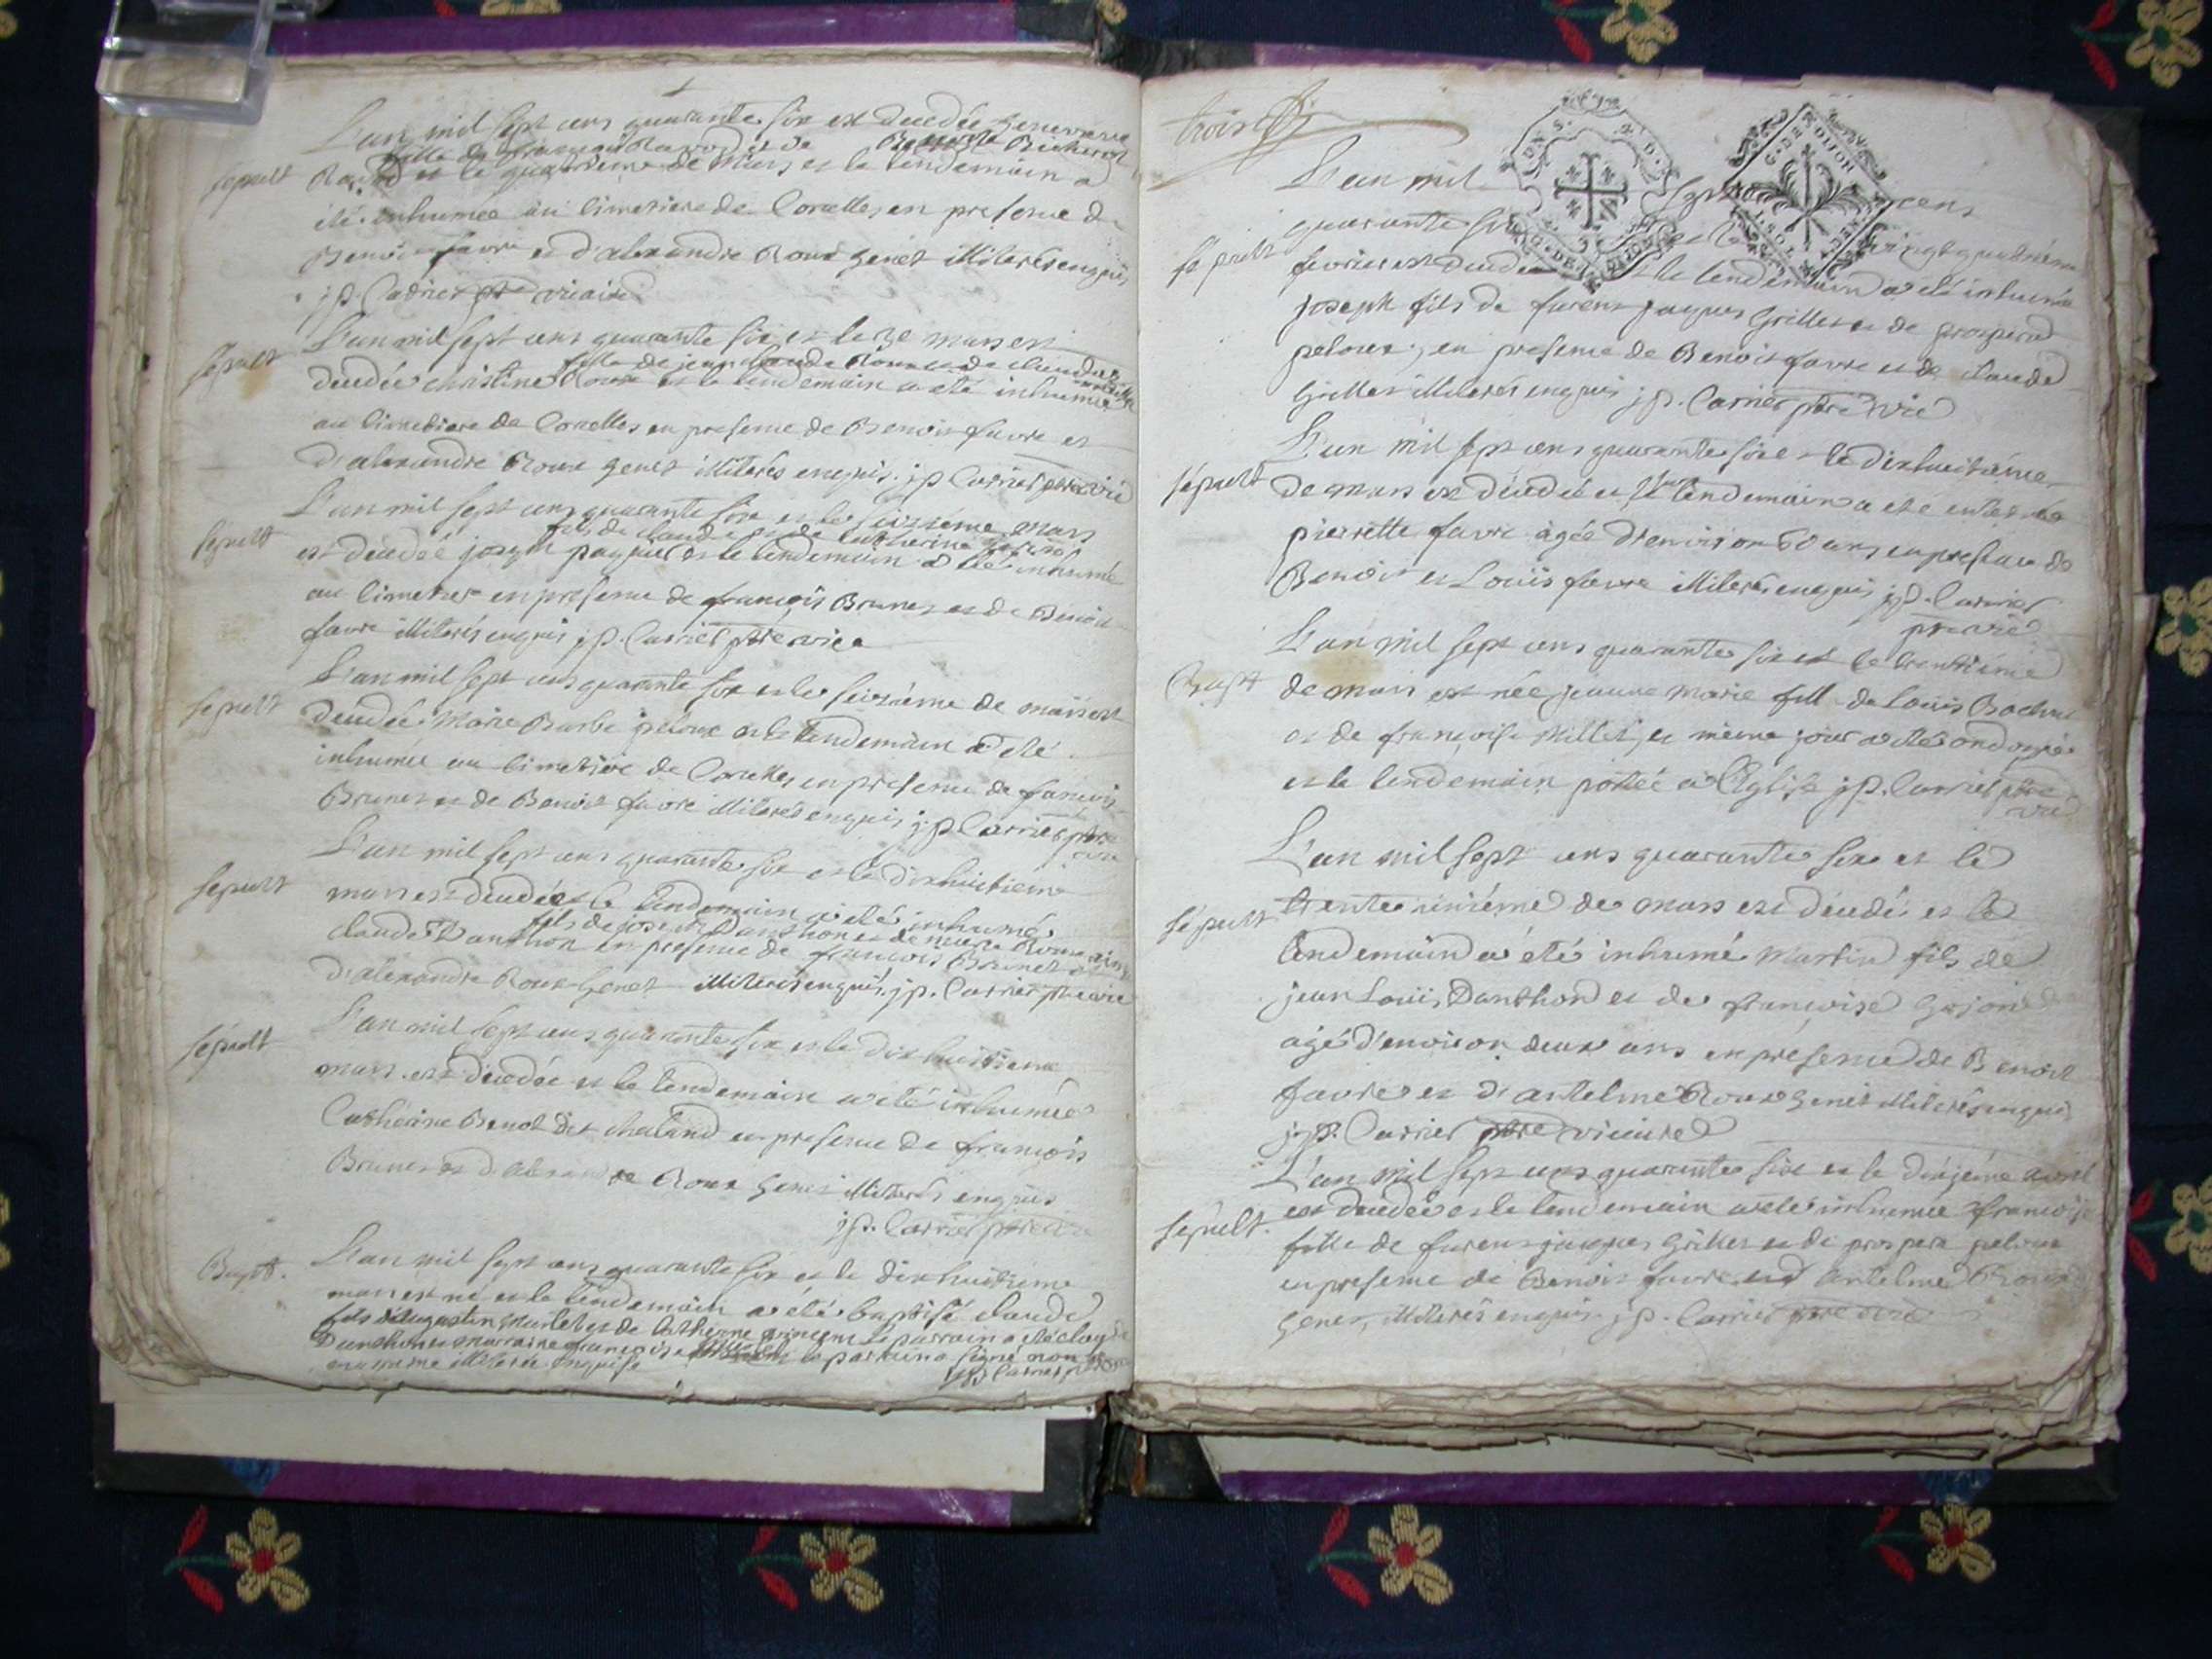 L'an mil sept cens quarante six est decedée genevieve
fille de françois Ravod et de
sepult
et le quatrième de Mars et le lendemain a
été inhumée au cimetiere de Corcelles en presence de
Benoit favre et d'alexandre Roux genet illiterés enquis
j p. Carrier ptre vicaire
L'an mil sept cens quarante six et le 3e mars est
sépult
fille de jean claude Roux et de claudaz
decedée christine Roux et le lendemain a eté inhumée
au cimetiere de Corcelles en presence de Benoit favre et
d'alexandre Roux genet illiterés enquis. j p Carrier ptre vic
L'an mil sept cens quarante six et le seizième mars
fils de claude et de Catherine
sépult
est decedé joseph paquet et le lendemain a eté inhumé
au cimetier en presence de françois Brunet et de Benoit
favre illiterés enquis j p. Carrier ptre vice
L'an mil sept cens quarante six et le seizième de mars est
sepult
decedée Marie Barbe peloux et le lendemain a eté
inhumée au cimetiere de Corcelles en presence de françois
Brunet et de Benoit favre illiterés enquis j p Carrier ptre
vice
L'an mil sept cens quarante six et le dixhuitieme
sepult
mars est decedé et le lendemain a eté inhumé
fils de joseph Danthon et de
claude Danthon en presence de françois Brunet et
d'alexandre Roux genet illiterés enquis. j p. Carrier ptre vic
L'an mil sept cens quarante six et le dix huitieme
sépult
mars est decedée et le lendemain a eté inhumée
Cathérine Benot dit chaland en presence de françois
Brunet et d'alexandre Roux genet illiterés enquis
j p. Carrier ptre vic
Bapt.
L'an mil sept cens quarante six et le dixhuitieme
mars est né et le lendemain a été baptisé claude
fils d'augustin et de Catherine le parrain a eté claude
Danthon et marraine françoise le parrain a signé non
marraine illiterée enquise
j p Carrier ptre
trois
G. DE DIJON
L'an mil sept cens
quarante six et le vingt quatriéme
sépult
fevrier est decedé et le lendemain a eté inhumé
joseph fils de furens jaques Grillet et de prospera
peloux, en presence de Benoit favre et de claude
Grillet illiterés enquis j p. Carrier ptre vic
L'an mil sept cens quarante six et le dixhuitiéme
sépult
de mars est decedée et le lendemain a eté enterrée
pierrette favre agée d'environ 60 ans en presence de
Benoit et Loüis favre illiterés enquis j p. Carrier
ptre vic
L'an mil sept cens quarante six et le trentiéme
Bapt
de mars est née jeanne marie fille de Louis
et de françoise Millet, et même jour a eté ondoyée
et le lendemain portée a l'Eglise j p. Carrier ptre
vic
L'an mil sept cens quarante six et le
sépult
trente uniéme de mars est decedé et le
lendemain a été inhumé Martin fils de
jean Loüis Danthon et de françoise Gojon
agé d'environ deux ans en présence de Benoit
favre et d'antelme Roux genet illiterés enquis
j p. Carrier ptre vicaire
L'an mil sept cens quarante six et le avril
sepult.
est decedée et le lendemain a eté inhumée françoise
fille de furens jacques Grillet et de prospera peloux
en presence de Benoit favre et d'antelme Roux
genet, illiterés enquis. j p. Carrier ptre vic